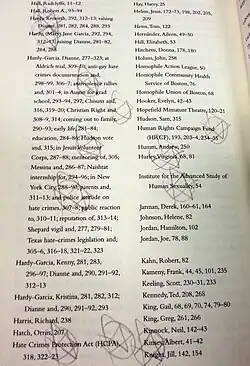 Hall, Radclyffe, 11–12
Hardy, Kenneth, 292, 312–13; raising
Dianne, 281, 282, 284, 288, 293
Hardy, (Mary) June Garcia, 292, 294,
312–13; raising Dianne, 281–82,
284, 288
Hardy-Garcia, Dianne, 277–323; at
Aldrich trial, 309–10; anti-gay hate
crimes documentation and,
298–99, 306–7; antiviolence rallies
and, 301–4; in Austin for grad
school, 293–94, 297; Chisum and,
316, 319–20; Christian Right and,
308–9, 314; coming out to family,
290–93; early life, 281–84;
education, 284–86; Hudson vote
and, 315; in Jesuit Volunteer
Corps, 287–88; mentoring of, 305;
Messina and, 286–87; Naishtat
internship for, 294–96; in New
York City, 288–90; parents and,
311–13; and police attitude on
hate crimes, 307–8; public reaction
to, 310–11; reputation of, 313–14;
Shepard vigil and, 277, 279–81;
Texas hate-crimes legislation and,
305–6, 316–18, 321–22, 323
Hardy-Garcia, Kenny, 281, 283,
296–97; Dianne and, 290, 291–92,
312–13
Hardy-Garcia, Kristina, 281, 282, 312;
Dianne and, 290, 291–92, 293
Harris, Richard, 238
Hatch, Orrin, 207
Hate Crimes Protection Act (HCPA),
318, 322–23
Hay, Harry, 25
Helms, Jesse, 172–73, 198, 202, 205,
209
Henn, Tom, 122
Hernández, Aileen, 49–50
Hill, Elizabeth, 53
Hitchens, Donna, 178, 180
Holum, John, 258
Homophile Action League, 50
Homophile Community Health
Service of Boston, 76
Homophile Union of Boston, 68
Hooker, Evelyn, 42–43
Hopeful Miniature Theatre, 120–21
Hudson, Sam, 315
Human Rights Campaign Fund
(HRCF), 193, 203–4, 234–35
Humm, Andrew, 250
Hurley, Virginia, 68, 81
Institute for the Advanced Study of
Human Sexuality, 54
Jarman, Derek, 160–61, 164
Johnson, Helene, 82
Jordan, Hamilton, 102
Jordan, Joe, 78, 88
Kahn, Robert, 82
Kameny, Frank, 44, 45, 101, 235
Keeling, Scott, 230–31, 233
Kennedy, Ted, 208, 268
King, Gail, 68, 69, 70, 74, 79–80
King, Greg, 261, 266
Kinnock, Neil, 142–43
Kinsey, Albert, 41–42
Knight, Jill, 142, 154